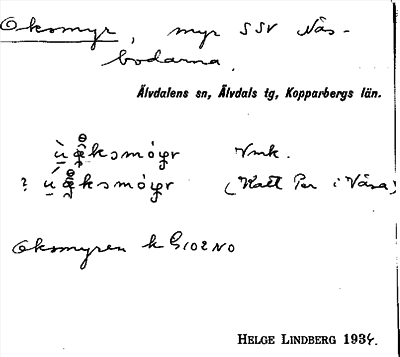 Oksmyr, myr SSV Näs-
bodarna.
Älvdalens sn, Älvdals tg, Kopparbergs län.
Vmk.
? (Katt Per i Våsa)
Oksmyren k G102NO
HELGE LINDBERG 1934.